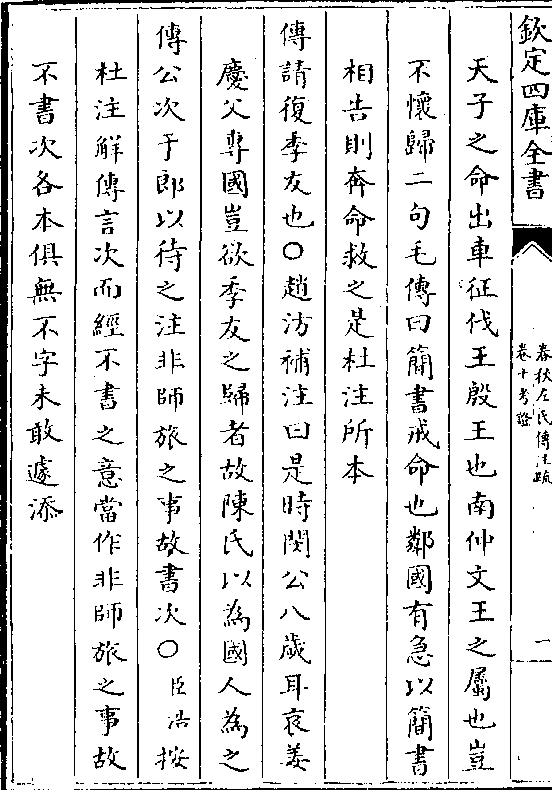 欽定四庫全書
春秋左氏傳注疏
卷十考證
一
天子之命出車征伐王殷王也南仲文王之屬也豈
不懷歸二句毛傳曰簡書戒命也鄰國有急以簡書
相告則奔命救之是杜注所本
傳請復季友也○趙汸補注曰是時閔公八歲耳哀姜
慶父專國豈欲季友之歸者故陳氏以為國人為之
傳公次于郎以待之注非師旅之事故書次○臣浩按
杜注解傳言次而經不書之意當作非師旅之事故
不書次各本俱無不字未敢遽添